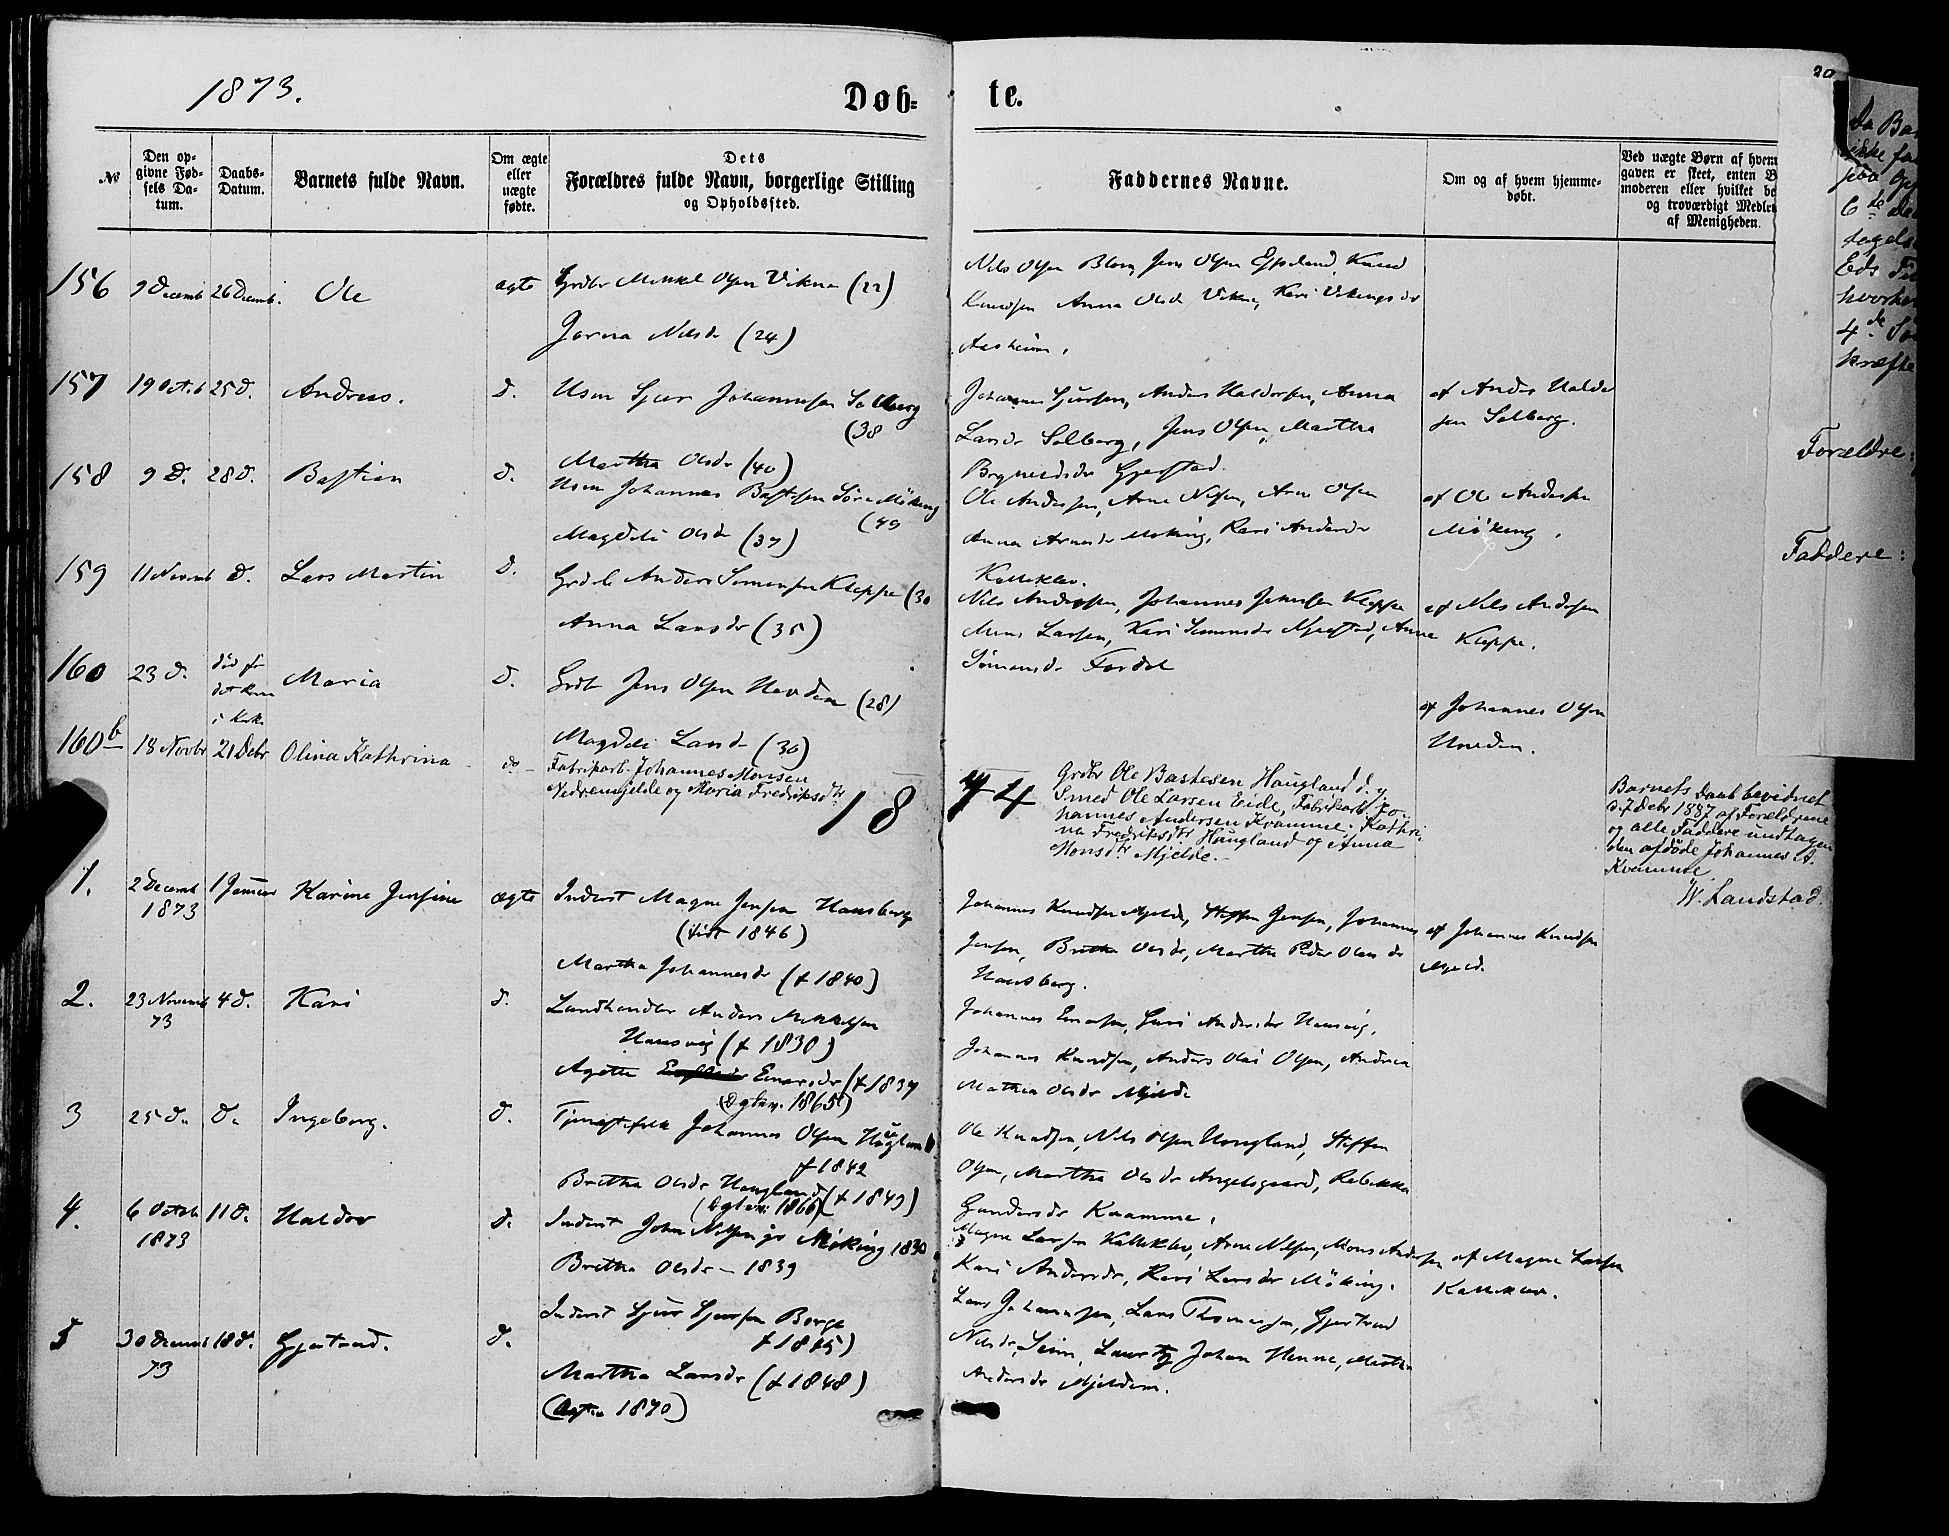 1873.
Døb=
te.
20
№
Den op-
givne Fød-
sels Da-
tum.
Daabs-
Datum.
Barnets fulde Navn.
Om ægte
eller
uægte
fødte.
Dets
Forældres fulde Navn, borgerlige Stilling
og Opholdssted.
Faddernes Navne.
Om og af hvem hjemme-
døbt.
Ved uægte Børn af hvem
gaven er skeet, enten B
moderen eller hvilket be
og troværdigt Medlem
af Menigheden.
156 9 Decemb 26 Decemb. Ole ægte Grdbr Mikkel Olsen Vikne (22)
Jorna Nilsdr (24)
Nils Olsen Blom, Jens Olsen Espeland, Knud
Knudsen Anna Olsdr Vikne, Kari Vikingsdr
Aasheim.
157 19 Octb 25 d. Andreas. d. Usm Sjur Johannessen Solberg
(38
Martha Olsdr (40)
Johannes Sjursen, Anders Haldorsen, Anna
Larsdr Solberg, Jens Olsen, Martha
Brynildsdr Gjerstad.
af Anders Haldor
sen Solberg.
158 9 d. 28 d. Bastian d. Usm Johannes Bastesen Søre Møking
(49
Magdeli Olsdr (37)
Ole Andersen, Arne Nilsen, Arne Olsen
Anna Arnesdr Møking, Kari Andersdr
Kalleklev.
af Ole Andersen
Møking.
159 11 Novemb d. Lars Martin d. Grdbr Anders Simonsen Kleppe (30
Anna Larsdr (35)
Nils Andersen, Johannes Jensen Kleppe
Mons Larsen, Kari Simonsdr Njaastad, Anna
Simonsdr Fordal
af Nils Andersen
Kleppe.
160 23 d. død før
det kom
i Kirke
Maria d. Grdbr Jens Olsen Unedem (28)
Magdeli Larsdr (30)
af Johannes Olsen
Uneden.
160b 18 Novbr 21 Debr Olina Kathrina d. Fabrikarb. Johannes Monsen
Nedremjelde og Maria Fredriksdtr
Grdbr Ole Bastesen Haugland d. y
Smed Ole Larsen Eide, Fabrikarb. Jo-
hannes Andersen Kvamme. Kathri-
na Fredriksdtr Haugland og Anna
Monsdtr Mjelde.
Barnets Daab bevidnet
d. 7 Debr 1887 af Forældrene
og alle Faddere undtagen
den afdøde Johannes A.
Kvamme
W. Landstad.
18
74
1. 2 Decemb
1873
1 Januar Karine Jensine ægte Inderst Magne Jensen Hausberg
(født 1846)
Martha Johannesdr (f 1840)
Johannes Knudsen Mjelde, Steffen Jensen, Johannes
Jensen, Britha Olsdr, Martha Peder Olsdr
Hausberg.
af Johannes Knudsen
Mjelde.
2. 23 Novemb
73
4 d. Kari d. Landhandler Anders Mikkelsen
Hausvig (f 1830)
Agathe Einarsdr (f 1837
(Egtev. 1865)
Johannes Einarsen, Guri Andersdr Hausvig,
Johannes Knudsen, Anders Olai Olsen, Andrea
Mathea Olsdr Mjelde
3 25 d. d. Ingeborg. d. Tjenestefolk Johannes Olsen Haugland
f 1842
Britha Olsdr Haugland (f 1843)
(Egtev. 1866)
Ole Knudsen, Nils Olsen Haugland, Steffen
Olsen, Martha Olsdr Angelsgaard, Rebekka
Gundersdr Kvamme.
4. 6 Octob
1873
11 d. Haldor d. Inderst John Nilsen jr Møking 1830
Britha Olsdr – 1839
Magne Larsen Kalleklev, Arne Nilsen, Mons Andersen
Kari Andersdr, Kari Larsdr Møking.
af Magne Larsen
Kalleklev.
5 30 Decemb
73
18 d. Gjertrud. d. Inderst Sjur Sjursen Borge
f 1845)
Martha Larsdr (f 1848)
(Egtev 1870)
Lars Johannesen, Lars Thomesen, Gjertrud
Nilsdr Seim, Lauritz Johan Henne, Martha
Andersdr Mjeldem.
Da Bar
ikke fa
paa
6te De
4de
kræfte
Forældre:
Faddere: